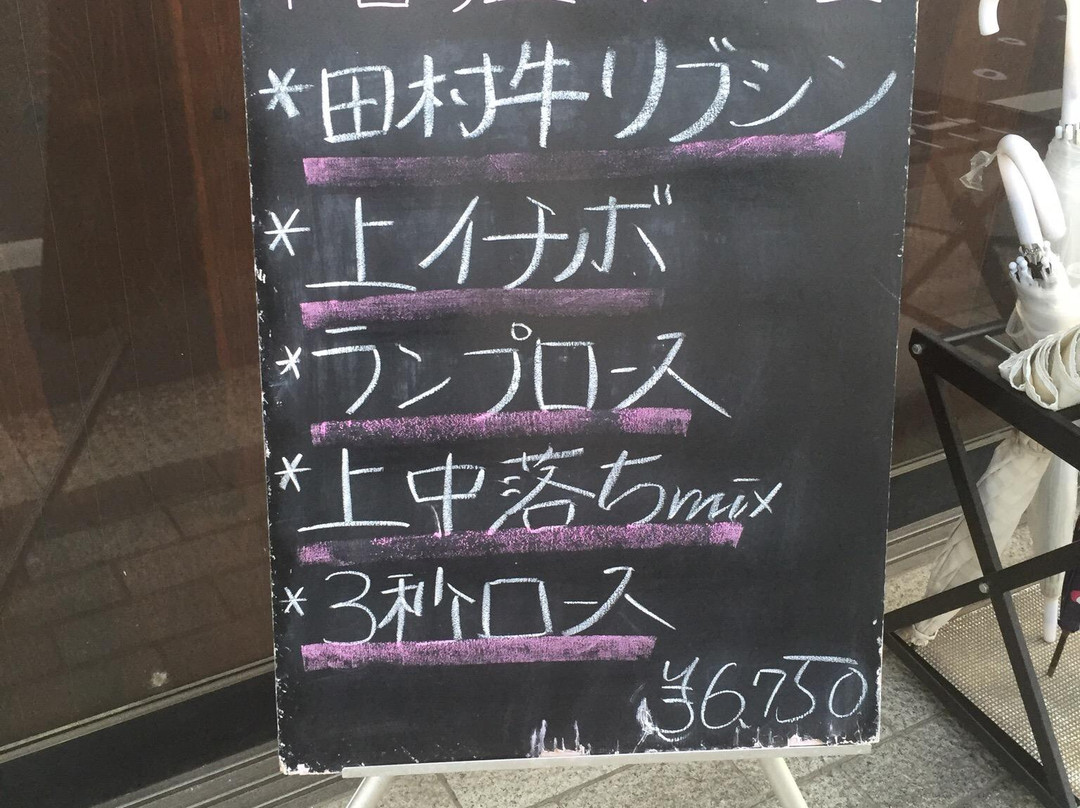 *田村牛リブシン
*上イチボ
*ランプロース
*上中落ちmix
*3秒ロース
¥6750